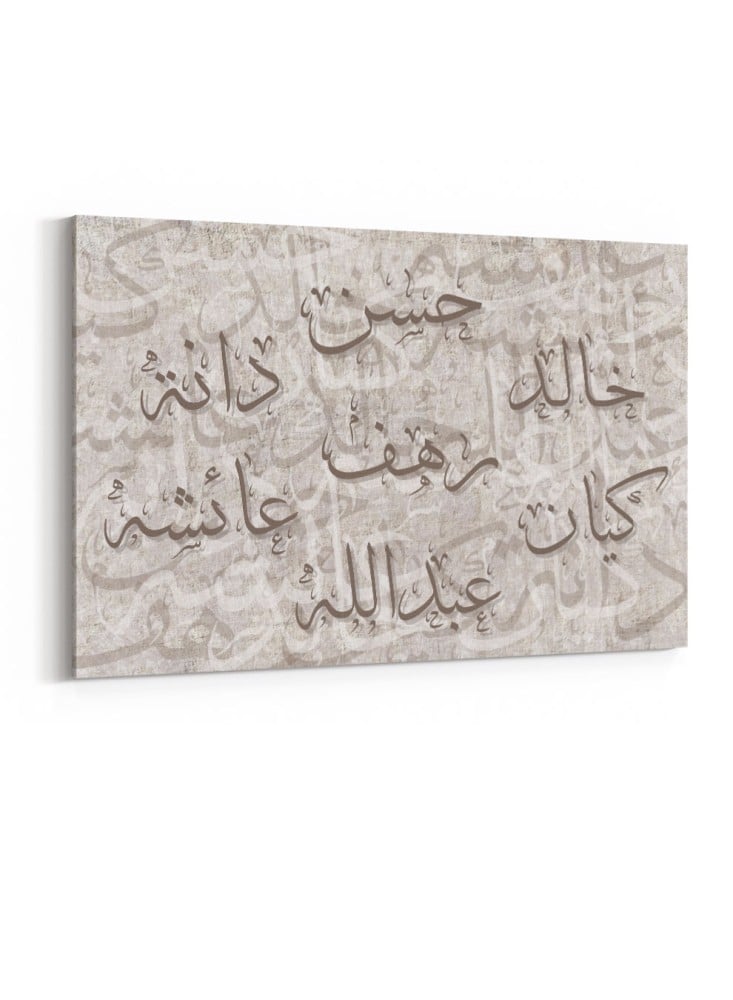 حسن
خالد دانة
رهف
كيان عائشه
عبدالله